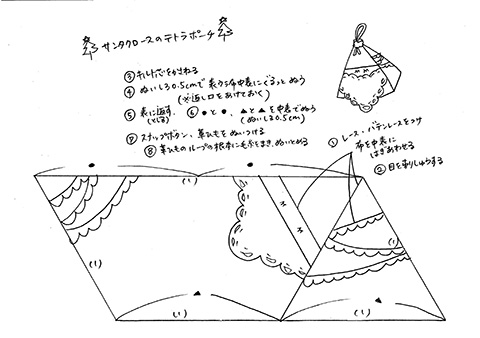 サンタクロースのテトラポーチ
③キルト芯をかさねる
④ぬいしろ0.5cmで表からぬ中表にぐるっとぬう
(※返し口をあけておく)
⑤表に返す
(とじる)
⑥●と●、▲と▲を中表でぬう
(ぬいしろ0.5cm)
⑦スナップボタン、革ひもをぬいつける
⑧革ひものループの根本に毛糸をまき、ぬいとめる
①レース・バテンレースをつけ
布を中表に
はぎあわせる
②目を刺しゅうする
(1)
(1)
(1)
(1)
(1)
(1)